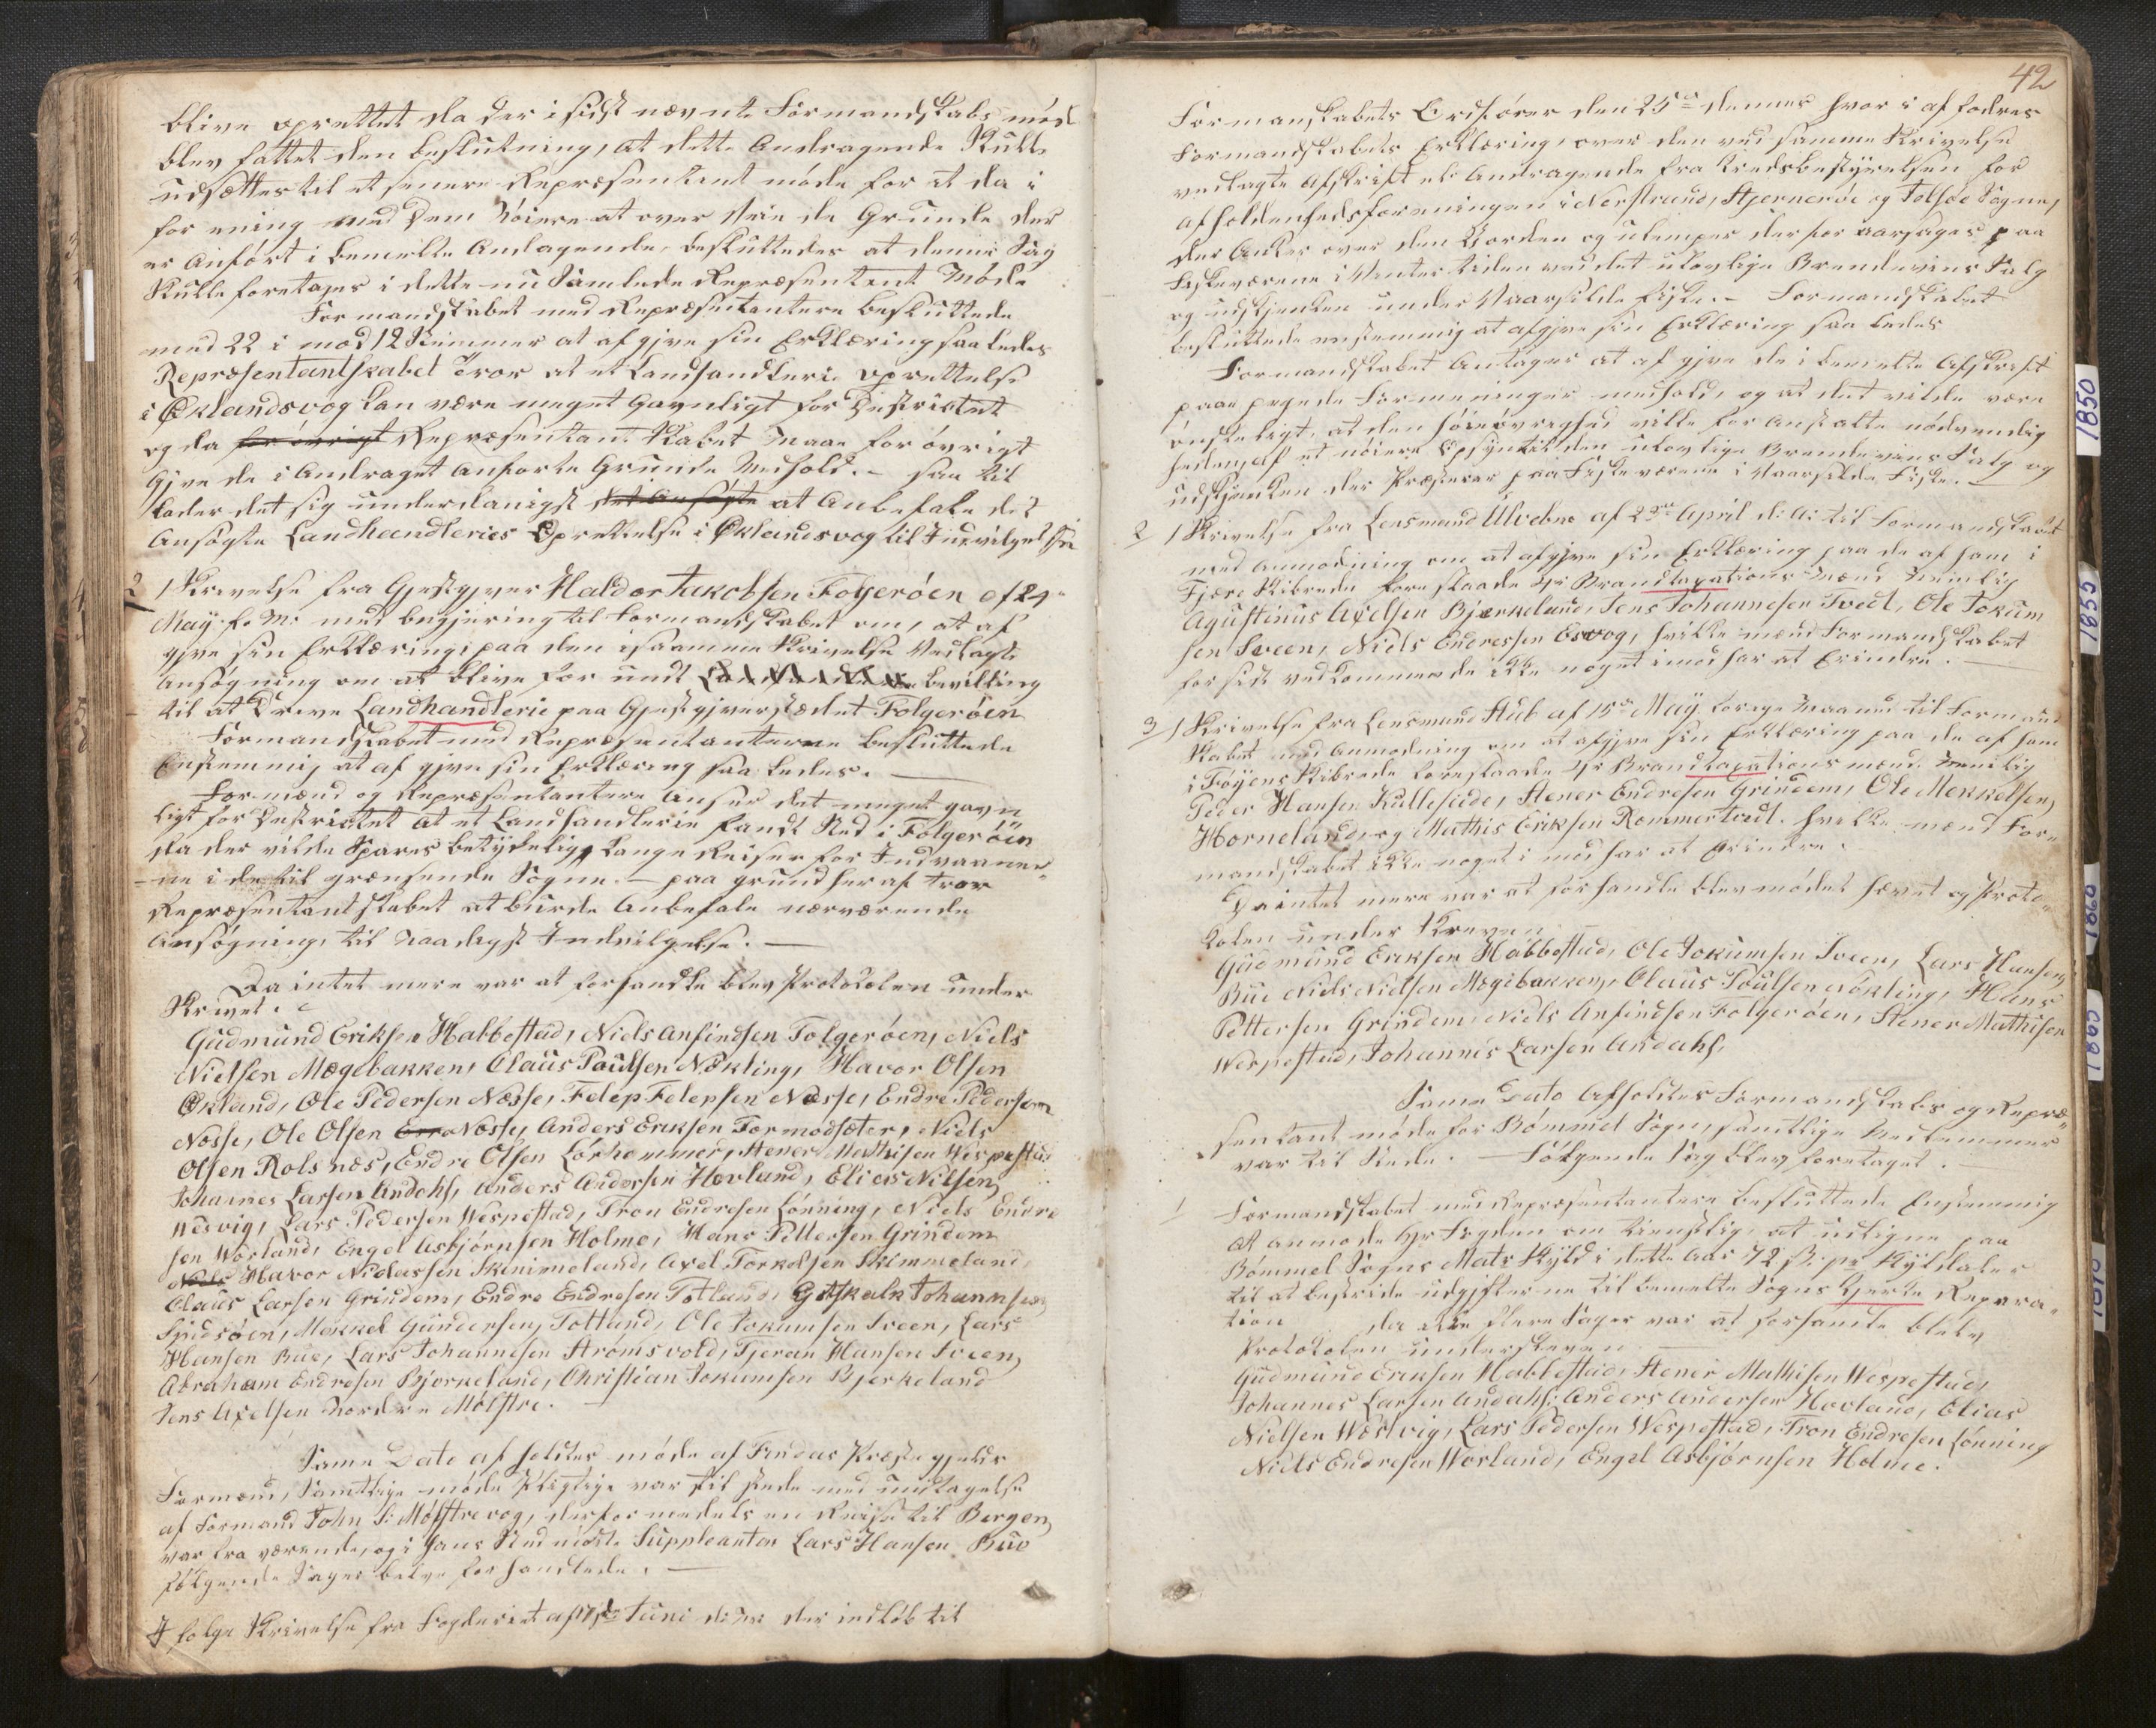 blive oprettet da der i sidst nævnte Formandskabs mød
blev fattet den beslutning, at dette Andragende Skulle
udsættes til et senere Repræsentant møde for at da i
for ening med dem Nöiere at over Veie de Grunde der
er Anført i bemelte Andagende, besluttedes at denne Sag
Skulle foretages i dette nu Samlede Repræsentent Møde
Formandskabet med Repræsentantere besluttede
med 22 i mod 12 Stemmer at af gjve sin Erklæring saaledes
Repræsentantskabet Tror at et Landhandlerie oprettelse
i Øklandsvog kan være meget Gavnligt for Districtet
og da for övrigt Repræsentant Skabet maae for övrigt
Gjve de i Andraget Anforte Grunde Medhold. - saa til
lader det sig underdanigst det Ansögte at Anbefale det
Ansögte Landhandleries Oprettelse i Øklandsvog til Indvilgelse
2 / Skrivelse fra Gjestgjver Haldor Jakobsen Folgeröen af 24
May f. M: med begjæring til Formandskabet om, at af
gjve sin Erklæring, paa den i saamme Skrivelse Vedlagte
Ansögning om at blive for undt bevilling
til at Drive Landhandlerie paa Gjestgjverstædet Folgeröen
Formandskabet med Repræsentanterne besluttede
Enstemmig at af gjve sin Erklæring saa ledes. —
Formænd og Repræsentantere Anser det meget gavn
ligt for Destrictet at et Landhandlerie fandt Sted i Folgeröen
da der vilde Spares betydelig Lange Reiser for Indvaaner„
„ne i de til grænsende Sogne. — paa grund her af tror
Repræsentantskabet at burde Anbefale nærværende
Ansögning, til naadigst Indvilgelse. —
Da intet mere var at forhandle blev Protokolen under
Skrevet.
Gudmund Eriksen Habbestad, Niels Anfindsen Folgeröen, Niels
Nielsen Mægebakken, Claus Paulsen Nökling, Havor Olsen
Økland, Ole Pedersen Næsse, Felep Felepsen Næsse, Endre Pedersen
Nosse, Ole Olsen Nosse, Anders Eriksen Tormodsæter, Niels
Olsen Rolsnæs, Endre Olsen Lörhammer, Stener Mathisen Wespestad
Johannes Larsen Andahl, Anders Andersen Hovland, Elias Nilsen
Wesvig, Lars Pedersen Wespestad, Tron Endresen Lönning, Niels Endre
senWorland, Engel Asbjörnsen Holme, Hans Pettersen Grindem
Niels Havor Niclassen Skimmeland, Axel Torkelsen Skimmeland
Claus Larsen Grindem, Endre Endresen Totland, Gotskalk Johannesen
Spidsöen, Mekkel Gundersen Totland, Ole Jokumsen Sveen, Lars
Hansen Bue, Lars Johannesen Strömsvold, Tjeran Hansen Sveen
Abraham Endresen Bjerkeland, Christian Jokumsen Bjerkeland
Jens Axelsen Nordre Mölstre.
Same Dato af holdtes møde af Findaas Præstegjelds
Formænd, Samtlige møde pligtige var til stede med undtagelse
af Formand John S: Mölstrevog, der formedels en Reise til Bergen
var fra værende, og i Hans Sted mödte Suppleanten Lars Hansen Bue
følgende Sager bleve forhandlede. —
I følge Skrivelse fra Fogderiet af 17de Juni d: M: der indløb til
42
Formanskabets Ordförer den 25de dennes hvor i af fodres
Formandskabets Erklæring, over den ved samme Skrivelse
vedlagte Afskrift et Andragende fra Kredsbestyrelsen for
afholdenhedsforeningen i Nerstrand, Hjernerøe og Jelsøe Sogne,
der Anker over den Uorden og ulemper der for aarsages paa
Fiskeværene i Vinter tiden ved det ulovlige Brendevins Salg
og udskjenken under Vaarsilde fiske. - Formandskabet
besluttede enstemmig at afgjve sin Erklæring saa ledes
Formandskabet Antager at af gjve de i bemelte Afskrift
paae pegede Formeninger medhold, og at det vilde være
ønskeligt, at den höie øvrighed ville for Anstalte nödvendig
heden af et nöiere Opsyn til den ulovlige Brendevins Salg og
udskjenken der Præsterer paa Fiskeværene i Vaarsilde Fiske. —
2 / Skrivelse fra Lensmand Ulvebne af 23de April d: A: til Formandskabet
med Anmodning om at afgjve sin Erklæring paa de af ham i
Fjære Skibrede foreslaade 4re Brandtaxations Mænd Nemlig
Agustinus Axelsen Bjerkeland, Jens Johannesen Tveit, Ole Jokum
sen Sveen, Niels Endresen Esvog, hvilke mænd Formandskabet
forsidt vedkommende ikke noget imod har at Erindre. —
3 / Skrivelse fra Lensmand Hub af 15de May forrige Maaned til Formand
Skabet med Anmodning om at afgjve sin Erklæring paa de af ham
i Föyens Skibrede foreslaade 4re Brandtaxations mænd nemlig
Peder Hansen Kulleseide, Stener Endresen Grindem, Ole Mekkelsen
Horneland, og Mathis Eriksen Rommertvedt. hvilke mænd For„
mandskabet ikke noget i mod har at Erindre.
Da intet mere var at for handle blev mødet hævet og Proto„
kolen under Skreven
Gudmund Eriksen Habbestad, Ole Jokumsen Sveen, Lars Hansen
Bue Niels Nielsen Mægebakken, Claus Poulsen Nökling, Hans
Pettersen Grindem, Niels Anfindsen Folgeröen, Stener Mathisen
Wespestad, Johannes Larsen Andahl,
Same Dato Afholdtes Formandskabs og Repræ„
sentant møde for Bömmel Sogn, samtlige Medlemmer
var til Stede. — Følgende Sag blev foretaget.
1 Formandskabet med Repræsentantere besluttede Enstemmig
At anmode Hr Fogden om tienstlig, at utligne paa
Bömmel Sogns Matr Skyld i dette Aar 72 ß. pr Skylddaler
til at bestride udgifterne til bemelte Sogns Kjerke Repara„
tion da ikke flere Sager var at forhandle blev
Protokolen underskreven
Gudmund Eriksen Habbestad, Stener Mathisen Wespestad,
Johannes Larsen Andahl, Anders Andersen Hovland, Elias
Nielsen Westvig, Lars Pedersen Wespestad, Tron Endresen Lönning
Niels Endresen Worland, Engel Asbjörnsen Holme.
1850
1855
1860
1865
1870